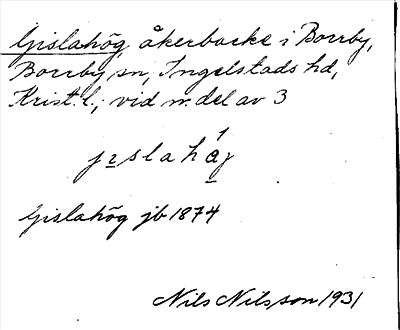 Gislahög, åkerbacke i Borrby,
Borrby sn, Ingelstads hd,
Krist. l.; vid n. del av 3
Gislahög jb 1874
Nils Nilsson 1931